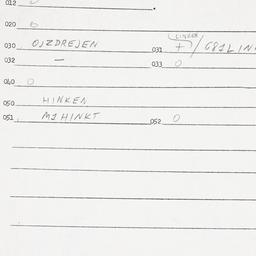 012
020 0
030 OJZDREJEN 031 + /
032 — 033 0
040 0
050 HINKEN
051 M1HINKT 052 0